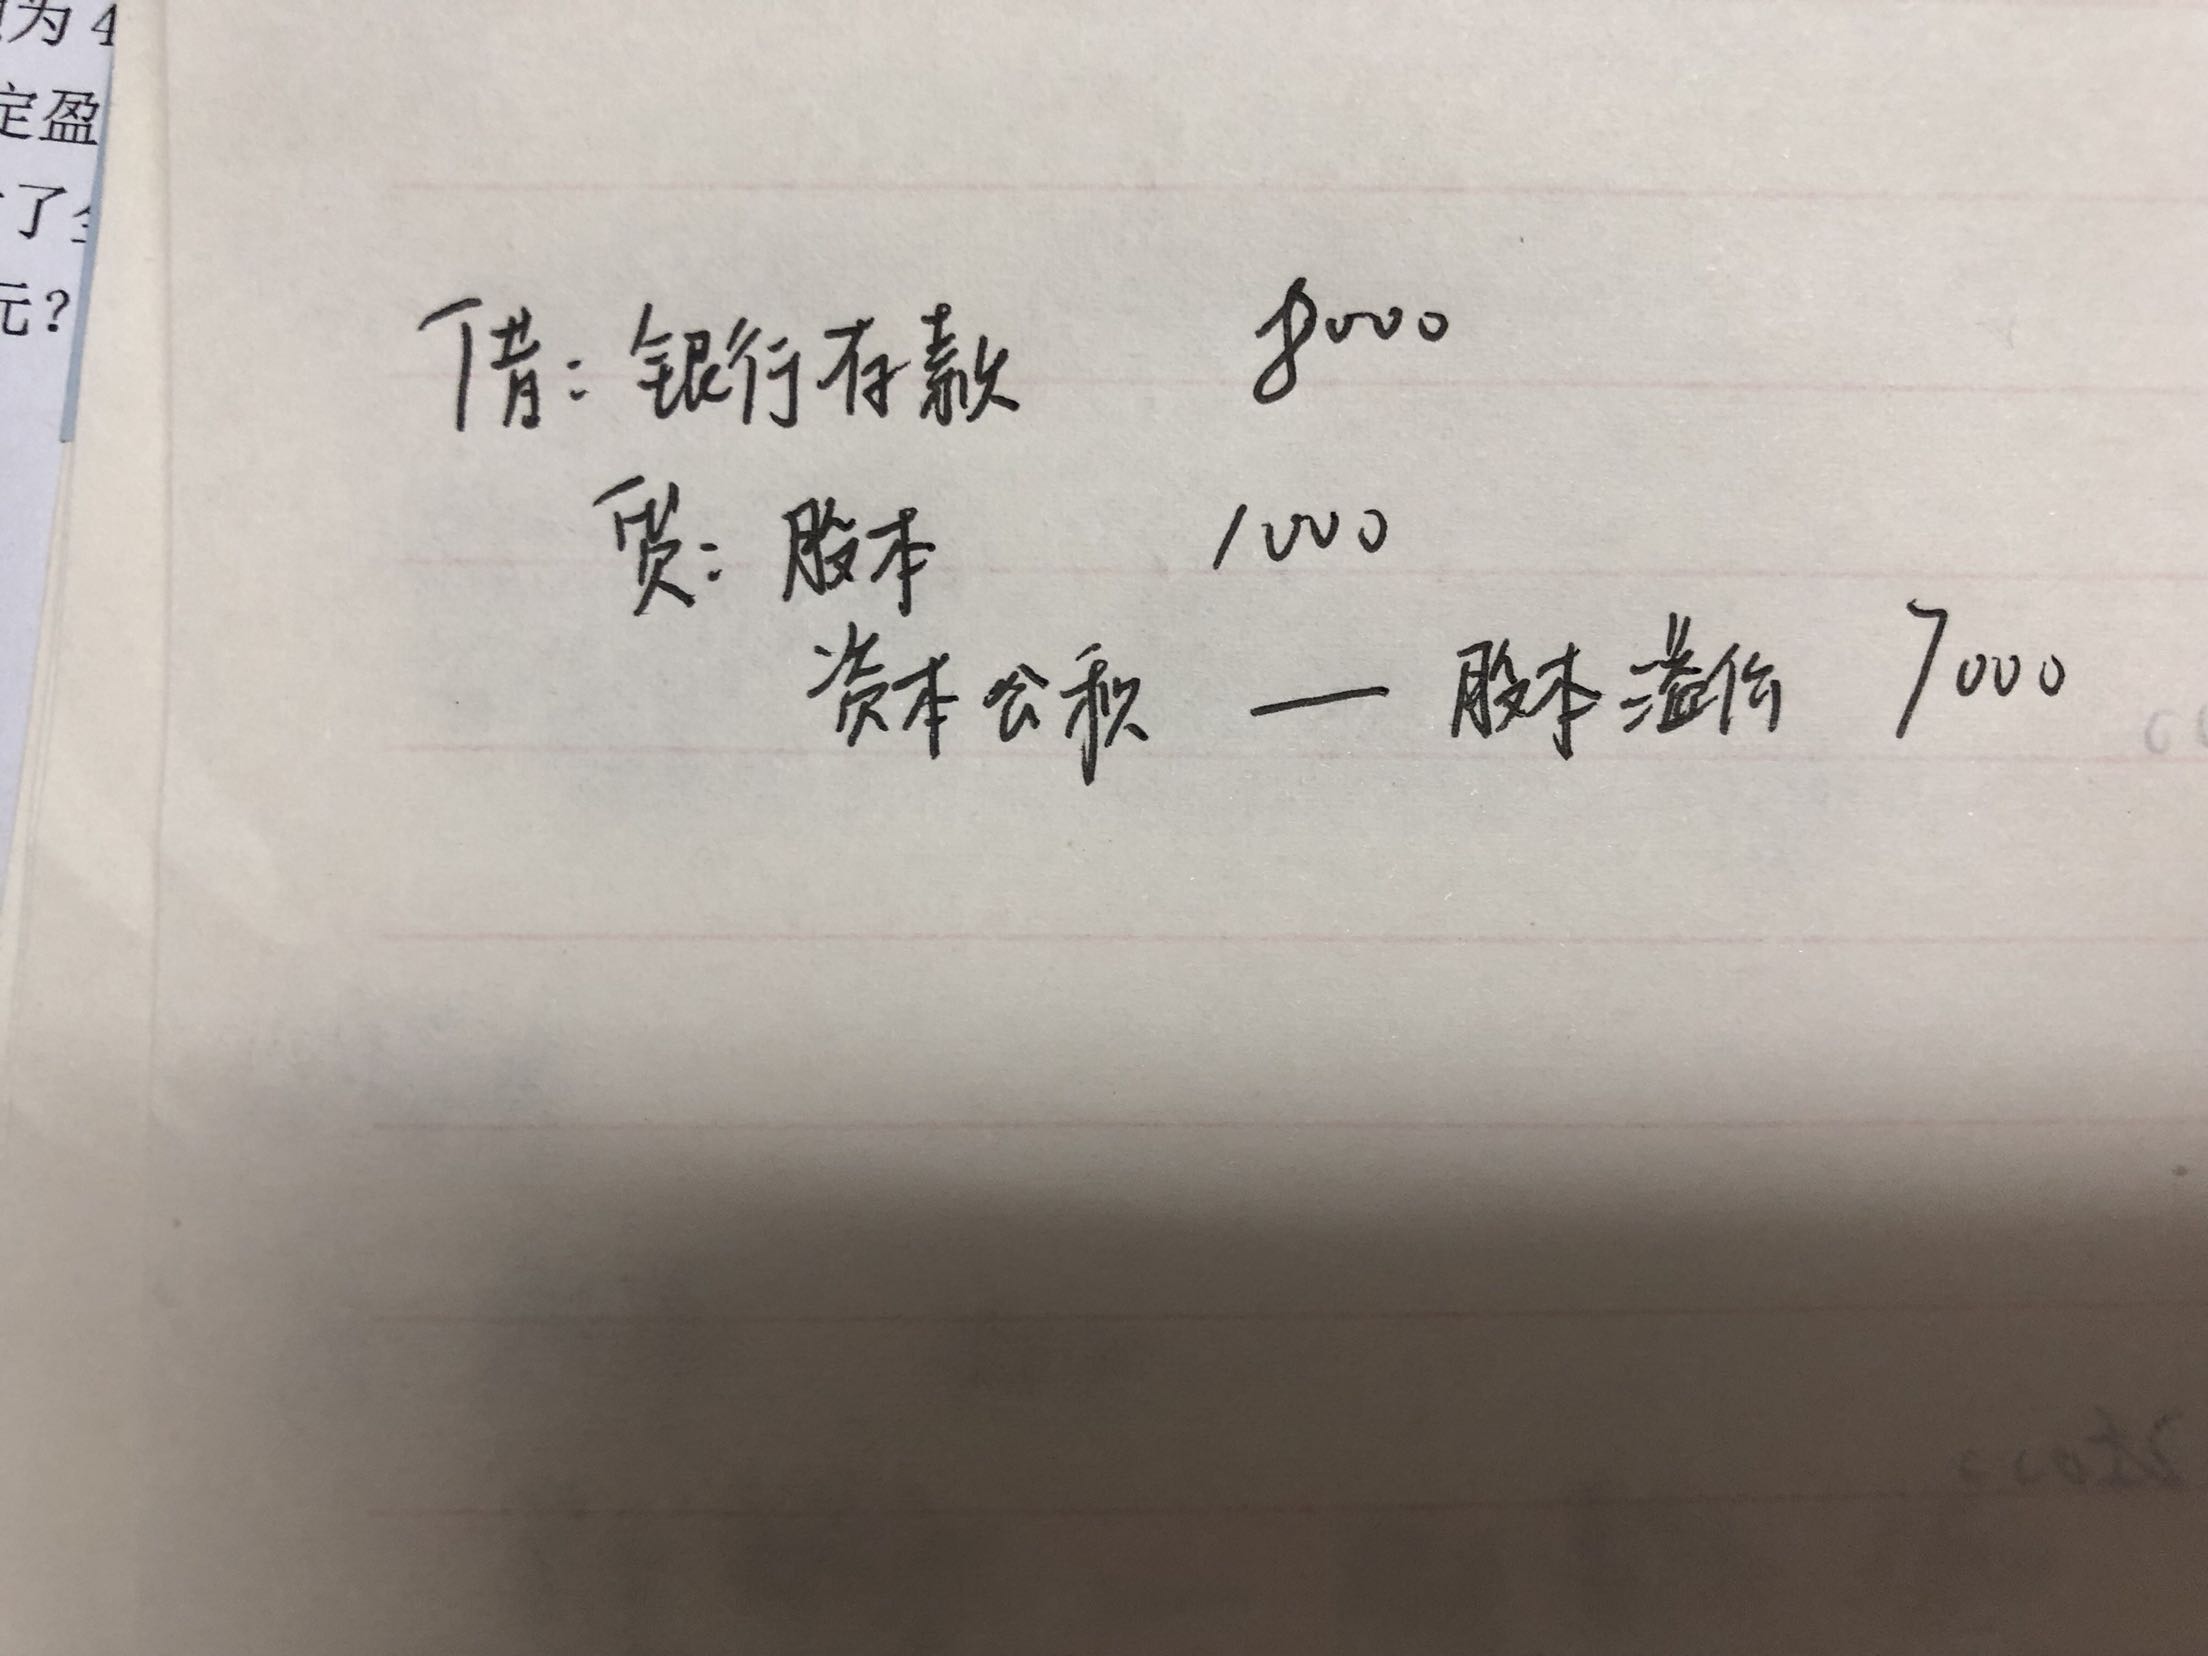 为 4
定盈
了
元?
借: 银行存款 8000
贷: 股本 1000
资本公积 — 股本溢价 7000